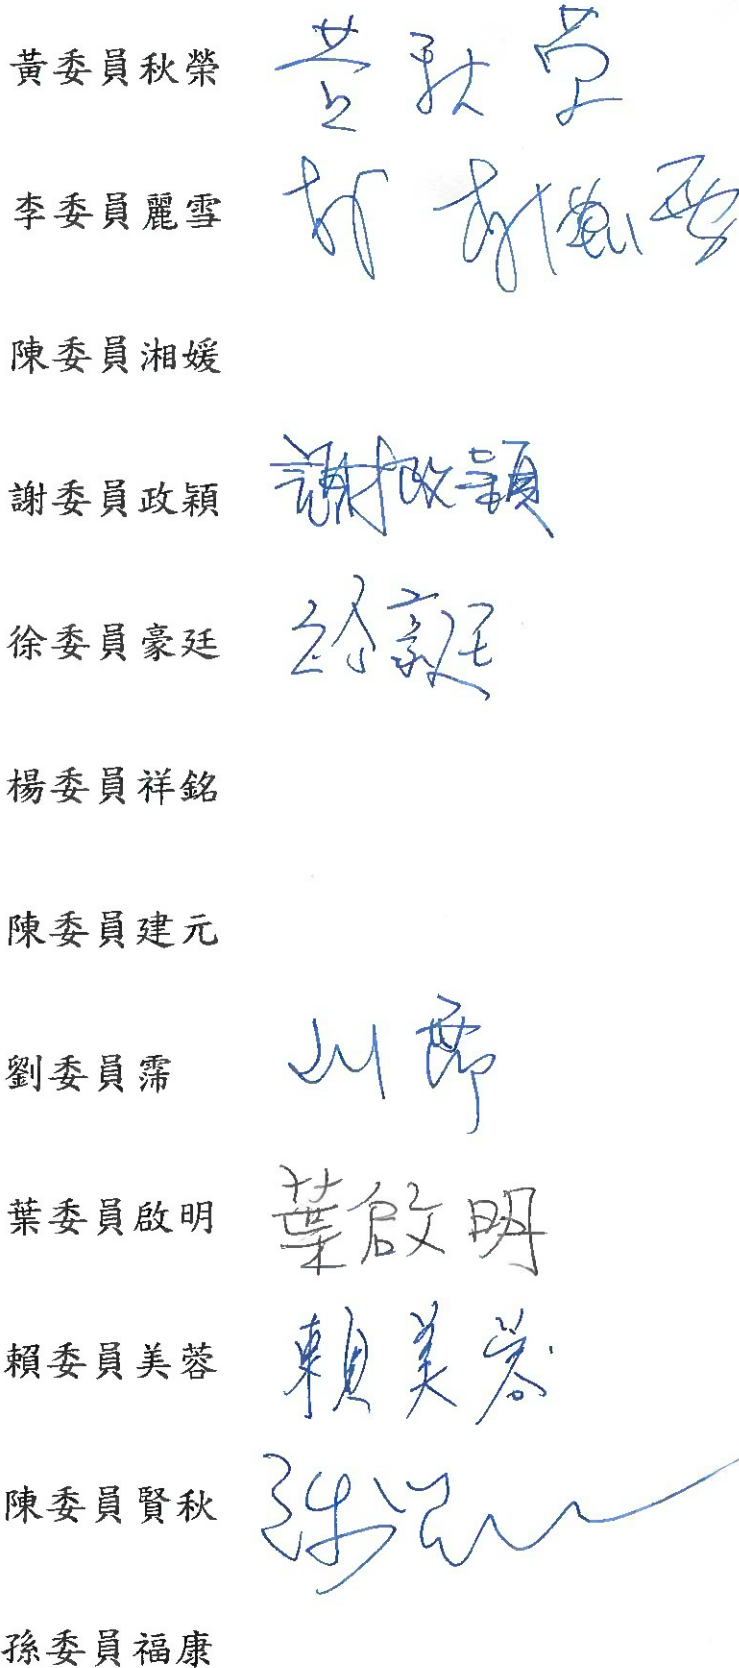 黃委員秋榮 黃秋榮
李委員麗雪
陳委員湘媛
謝委員政穎 謝政穎
徐委員豪廷 徐豪廷
楊委員祥銘
陳委員建元
劉委員霈
葉委員啟明 葉啟明
賴委員美蓉 賴美蓉
陳委員賢秋
孫委員福康